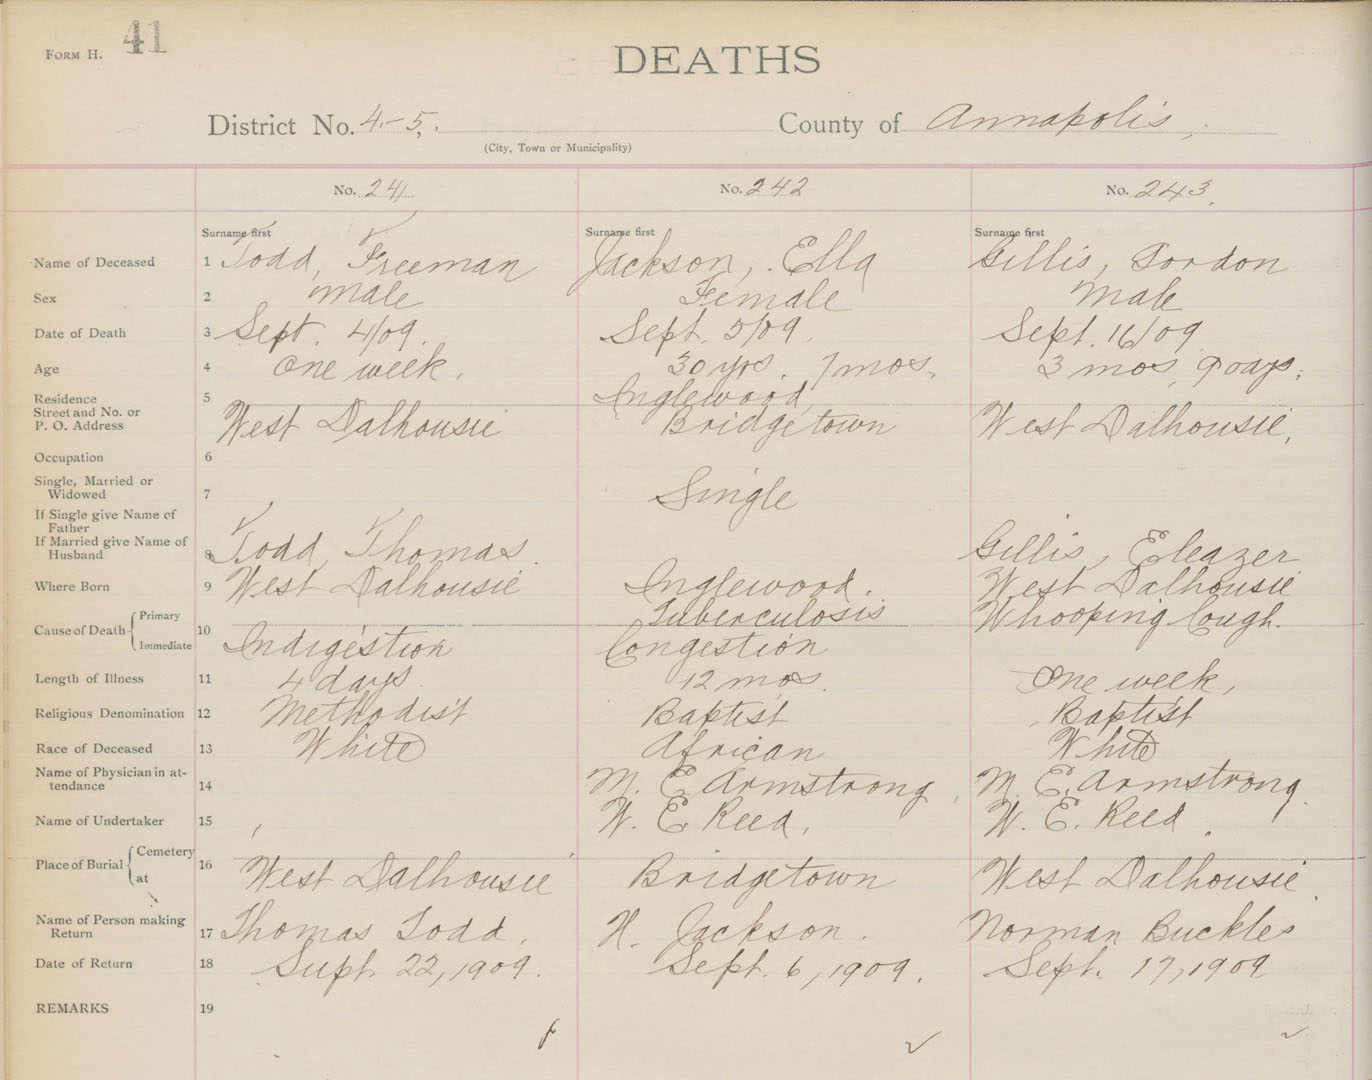 Form H. 41
DEATHS
District No. 4-5, County of Annapolis,
(City, Town or Municipality)
No. 241 No. 242 No. 243.
Surname first Surname first Surname first
Name of Deceased 1 Todd, Freeman Jackson, Ella Gillis, Gordon
Sex 2 Male Female Male
Date of Death 3 Sept. 4/09. Sept. 5/09. Sept. 16/09
Age 4 One week, 30 yrs. 7 mos. 3 mos, 9 days.
Residence 5 Inglewood,
Street and No. or
P. O. Address West Dalhousie Bridgetown West Dalhousie,
Occupation 6
Single, Married or
Widowed 7 Single
If Single give Name of
Father
If Married give Name of
Husband 8 Todd, Thomas. Gillis, Eleazer
Where Born 9 West Dalhousie Inglewood. West Dalhousie
Cause of Death Primary 10 Tuberculosis Whooping Cough.
Immediate Indigestion Congestion
Length of Illness 11 4 days. 12 mos. One week,
Religious Denomination 12 Methodist Baptist Baptist
Race of Deceased 13 White African White
Name of Physician in at-
tendance 14 M. E. Armstrong, M. E. Armstrong.
Name of Undertaker 15 W. E. Reed, W. E. Reed.
Place of Burial Cemetery 16
at West Dalhousie Bridgetown West Dalhousie
Name of Person making
Return 17 Thomas Todd, H. Jackson. Norman Buckles
Date of Return 18 Supt. 22, 1909. Sept. 6, 1909. Sept. 17, 1909
REMARKS 19